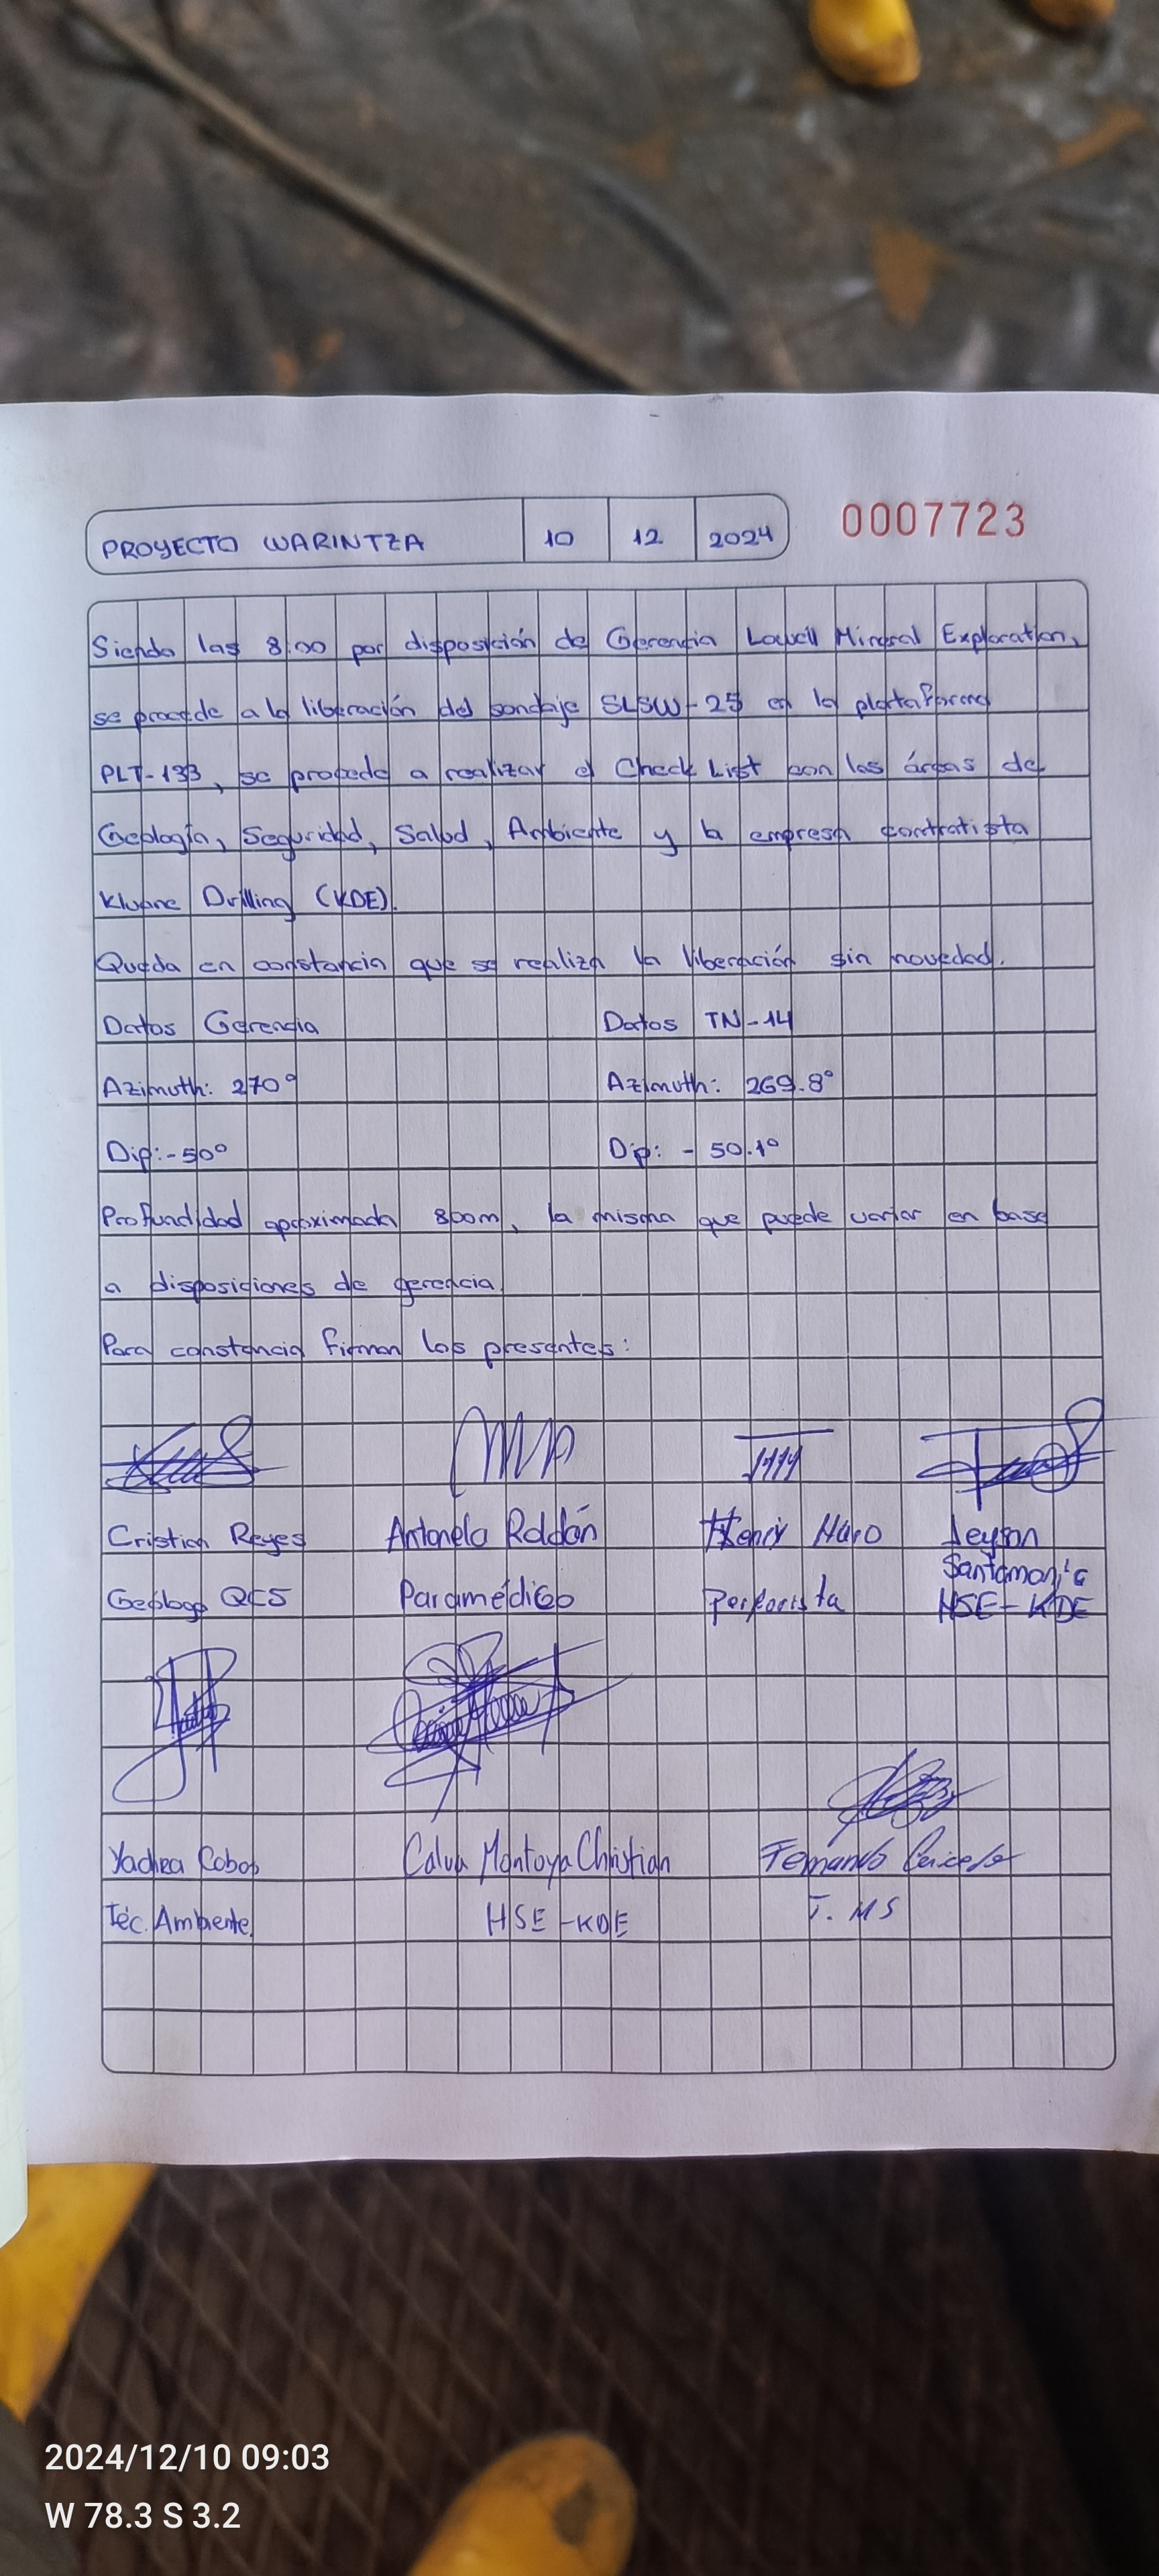 PROYECTO WARINTZA 10 12 2024 0007723
Siendo las 8:00 por disposición de Gerencia Lowell Mineral Exploration,
se procede a la liberación del sondaje SLSW-25 en la plataforma
PLT-133, se procede a realizar el Check List con las áreas de
Geología, Seguridad, Salud, Ambiente y la empresa contratista
Kluane Drilling (KDE).
Queda en constancia que se realiza la liberación sin novedad.
Datos Gerencia Datos TN-14
Azimuth: 270° Azimuth: 269.8°
Dip: -50° Dip: - 50.1°
Profundidad aproximada 800m, la misma que puede variar en base
a disposiciones de gerencia
Para constancia firman los presentes:
Cristian Reyes Antonela Roldán Henry Haro Jeyson
Santamaría
Geólogo QCS Paramédico Perforista HSE-KDE
Yadira Cobos Calva Montoya Christian Fernando
Téc. Ambiente HSE-KDE T. MS
2024/12/10 09:03
W 78.3 S 3.2